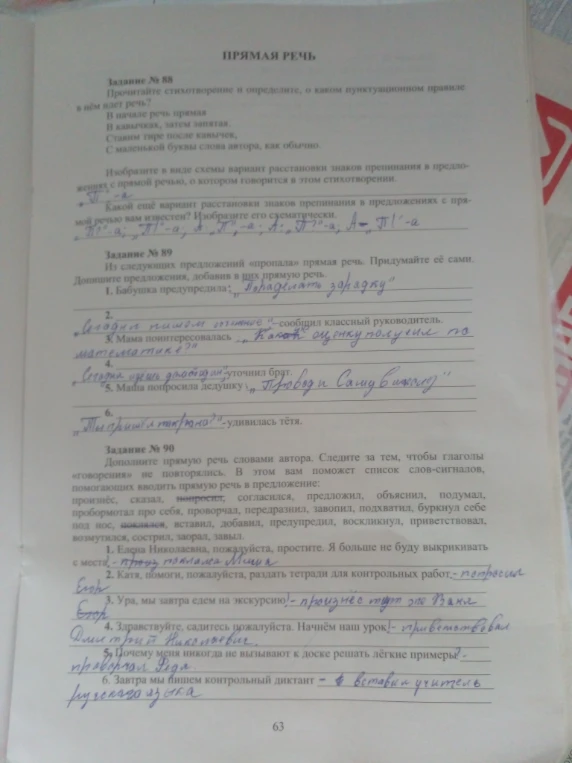 ПРЯМАЯ РЕЧЬ
Задание № 88
Прочитайте стихотворение и определите, о каком пунктуационном правиле
в нём идет речь?
В начале речь прямая
В кавычках, затем запятая.
Ставим тире после кавычек,
С маленькой буквы слова автора, как обычно.
Изобразите в виде схемы вариант расстановки знаков препинания в предло-
жениях с прямой речью, о котором говорится в этом стихотворении.
„П" -а
Какой ещё вариант расстановки знаков препинания в предложениях с пря-
мой речью вам известен? Изобразите его схематически.
Задание № 89
Из следующих предложений «пропала» прямая речь. Придумайте её сами.
Допишите предложения, добавив в них прямую речь.
1. Бабушка предупредила: „Пора делать зарядку"
2.
„Сегодня пишем -сообщил классный руководитель.
3. Мама поинтересовалась „Какой оценку получил по
математике?"
4.
„Сегодня -уточнил брат.
5. Маша попросила дедушку „Проводи Сашу
6.
-удивилась тётя.
Задание № 90
Дополните прямую речь словами автора. Следите за тем, чтобы глаголы
«говорения» не повторялись. В этом вам поможет список слов-сигналов,
помогающих вводить прямую речь в предложение:
произнёс, сказал, попросил, согласился, предложил, объяснил, подумал,
пробормотал про себя, проворчал, передразнил, завопил, подхватил, буркнул себе
под нос, вставил, добавил, предупредил, воскликнул, приветствовал,
возмутился, сострил, заорал, завыл.
1. Елена Николаевна, пожалуйста, простите. Я больше не буду выкрикивать
с места, - Миша
2. Катя, помоги, пожалуйста, раздать тетради для контрольных работ, - попросил
Егор
3. Ура, мы завтра едем на экскурсию! - произнёс Ваня
Егор
4. Здравствуйте, садитесь пожалуйста. Начнём наш урок! - приветствовал
Дмитрий Николаевич.
5. Почему меня никогда не вызывают к доске решать лёгкие примеры? -
проворчал Федя
6. Завтра мы пишем контрольный диктант - вставил учитель
русского языка
63